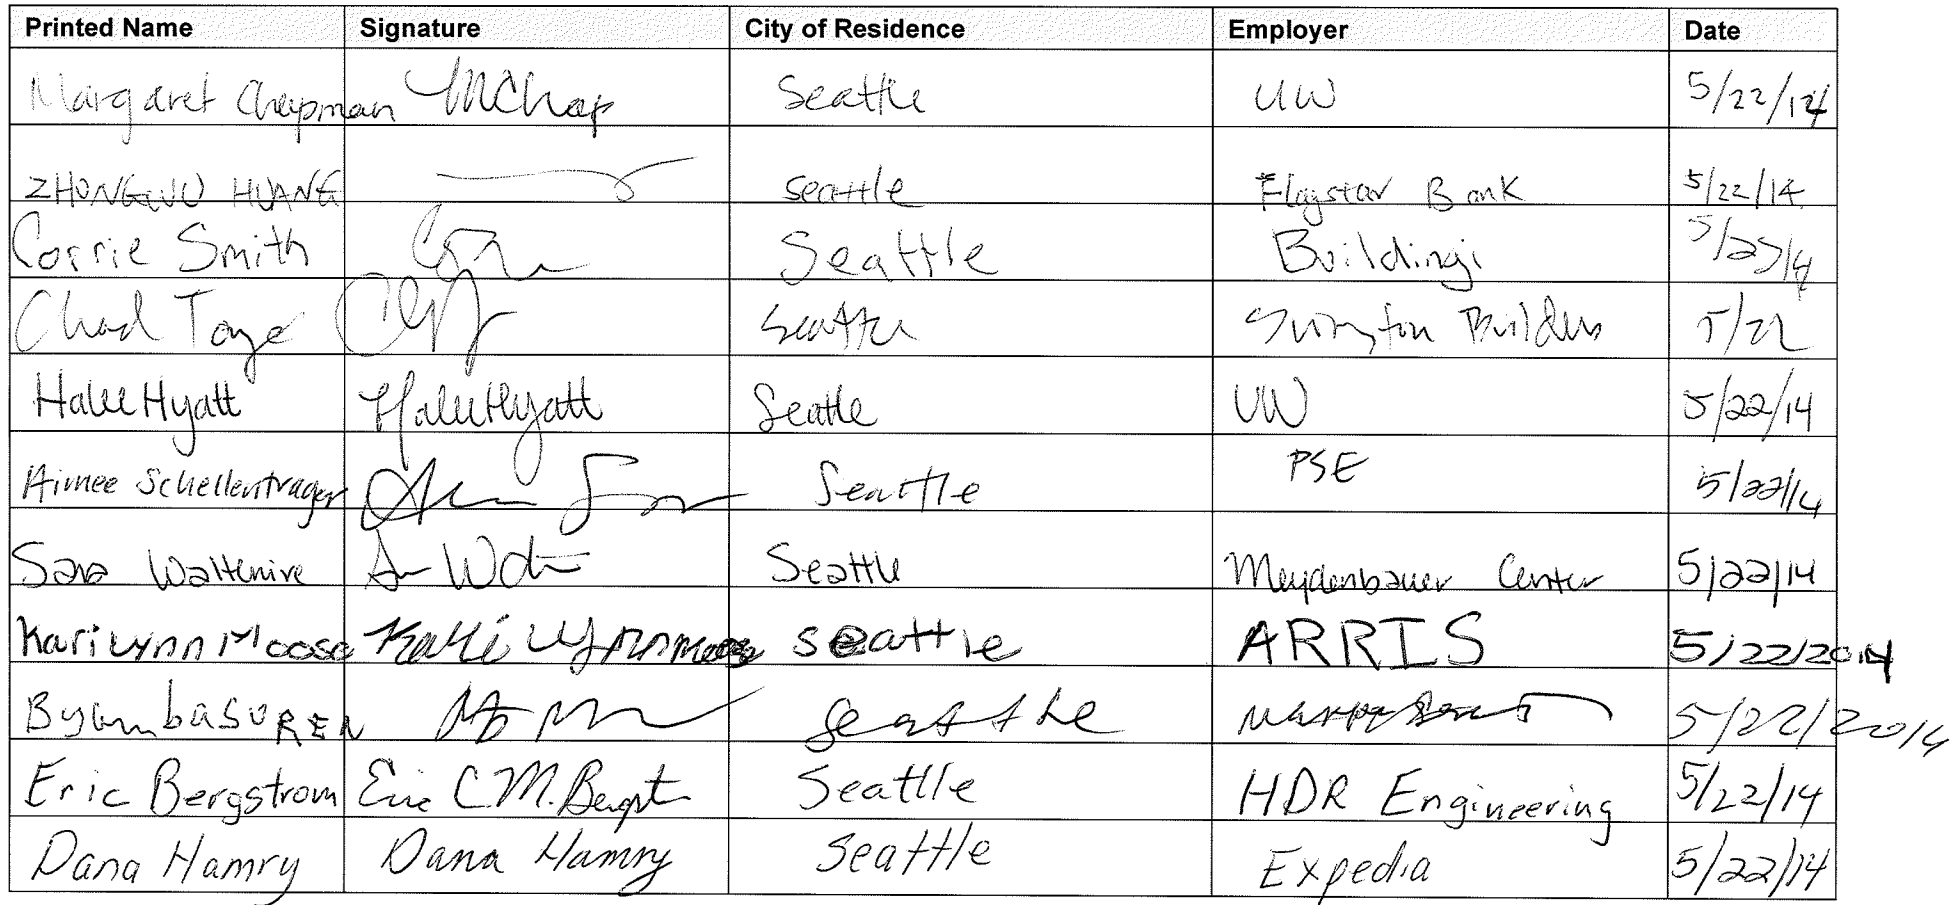 Printed Name Signature City of Residence Employer Date
Margaret Chapman MChap Seattle UW 5/22/14
ZHONGWU HUANG seattle Flagstar Bank 5/22/14
Corrie Smith Seattle Buildingi 5/22/14
Chad Seattle Builders 5/22
Halee Hyatt Halee Hyatt Seattle UW 5/22/14
Aimee Schellentrager Seattle PSE 5/22/14
Sara Seattle Meydenbauer Center 5/22/14
Kari Lynn Moose Seattle ARRIS 5/22/2014
ByambasuREN Seattle 5/22/2014
Eric Bergstrom Eric C.M. Seattle HDR Engineering 5/22/14
Dana Hamry Dana Hamry Seattle Expedia 5/22/14